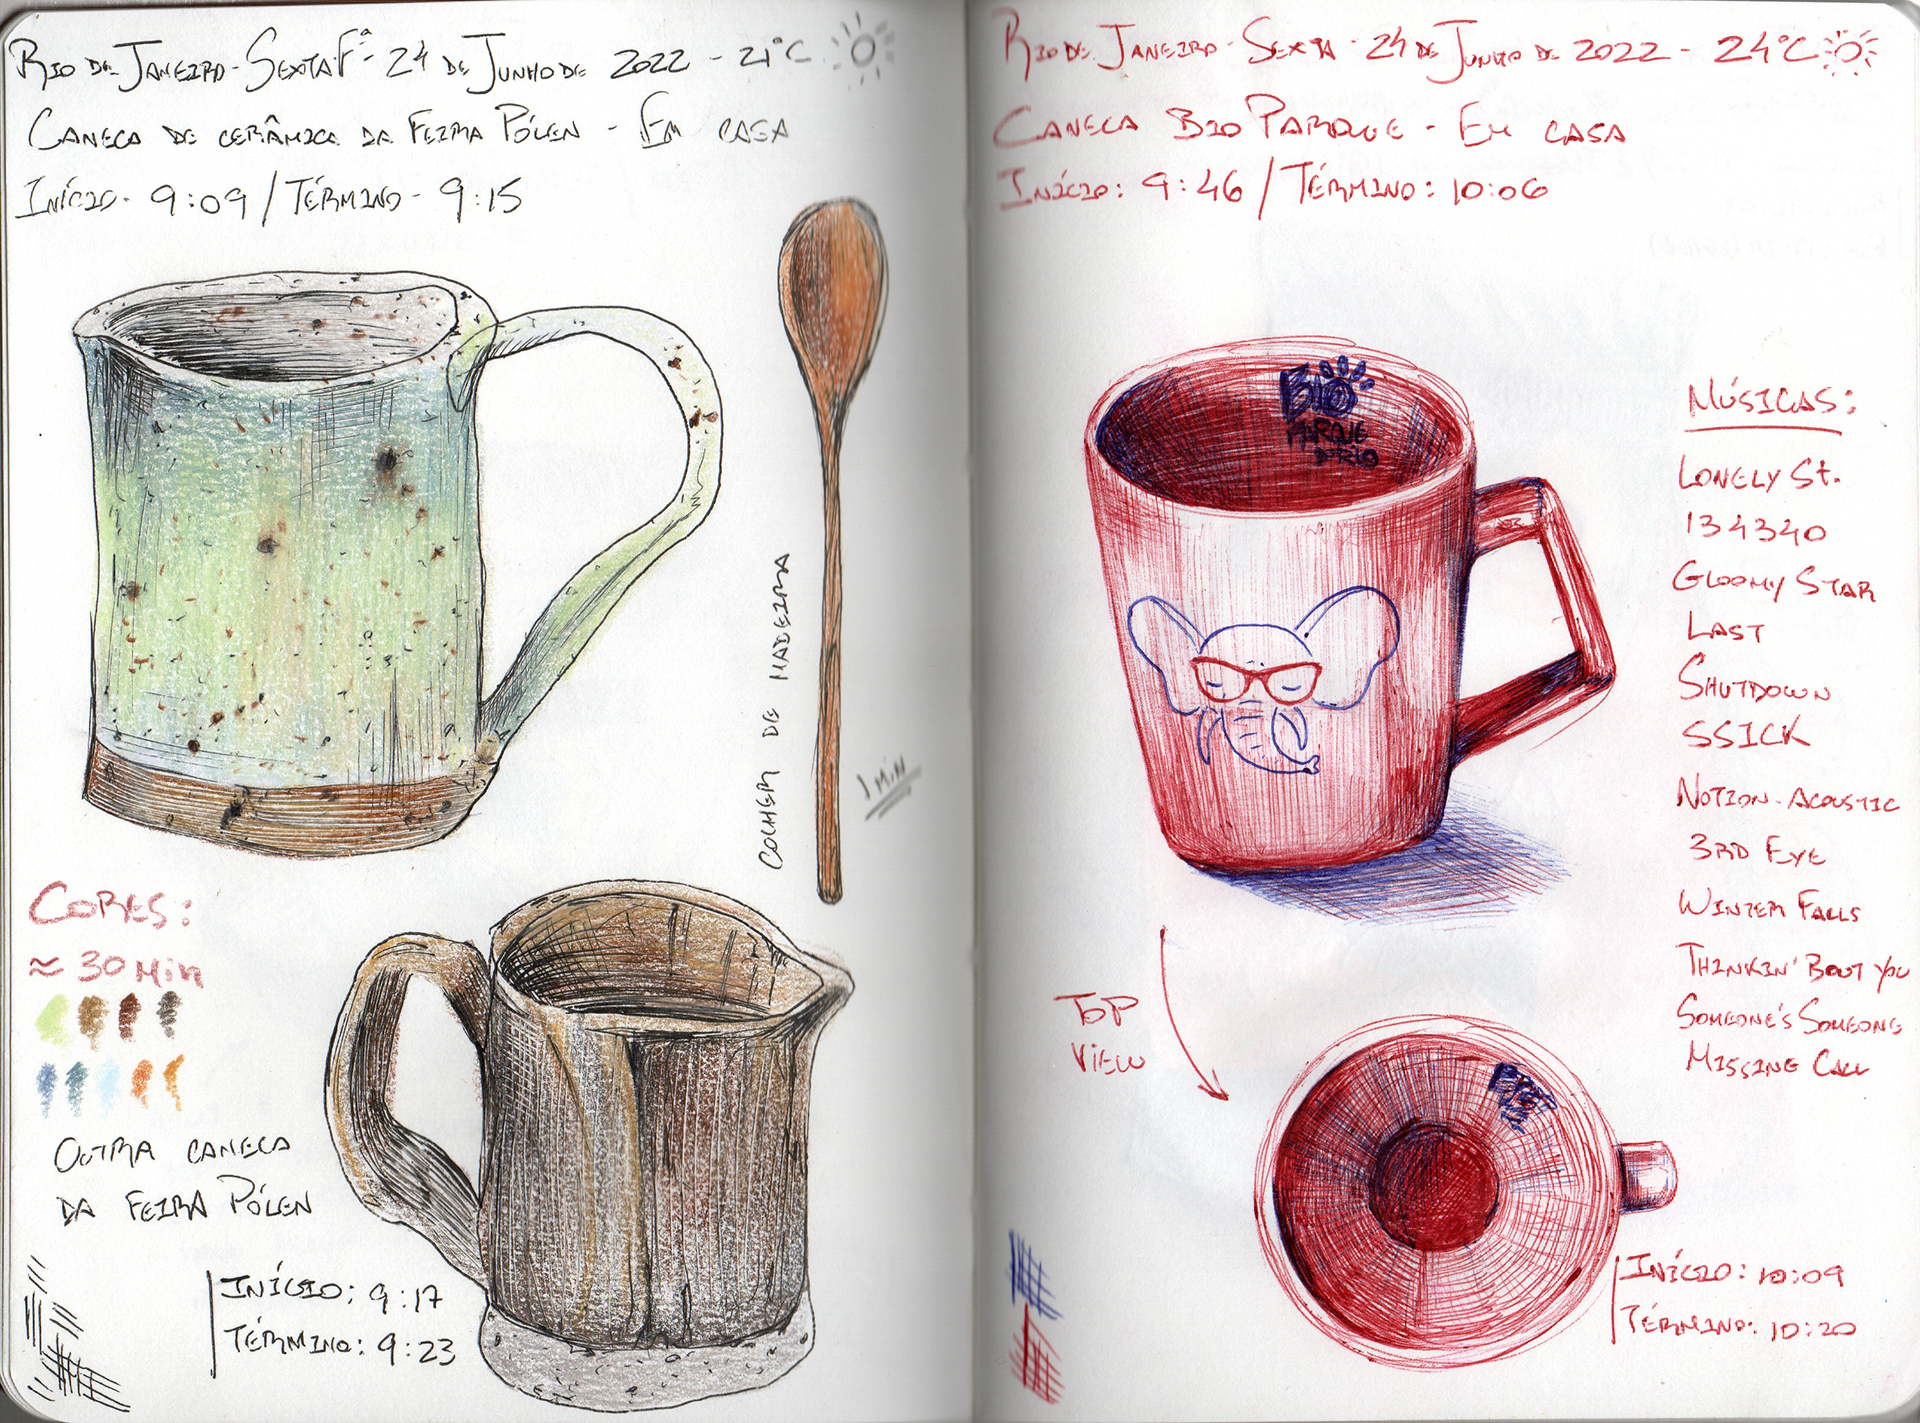 Rio de Janeiro - Sexta Fª - 24 de Junho de 2022 - 21°C
Caneca de cerâmica da Feira Pólen - Em casa
Início - 9:09 / Término - 9:15
Colher de madeira
1 min
Cores:
≈ 30 min
Outra caneca
da Feira Pólen
Início: 9:17
Término: 9:23
Rio de Janeiro - Sexta - 24 de Junho de 2022 - 24°C
Caneca Bio Parque - Em casa
Início: 9:46 / Término: 10:06
Bio
Parque
do Rio
Músicas:
Lonely St.
134340
Gloomy Star
Last
Shutdown
SSICK
Notion - Acoustic
3rd Eye
Winter Falls
Thinkin' Bout You
Someone's Someone
Missing Call
Top
View
Início: 10:09
Término: 10:20